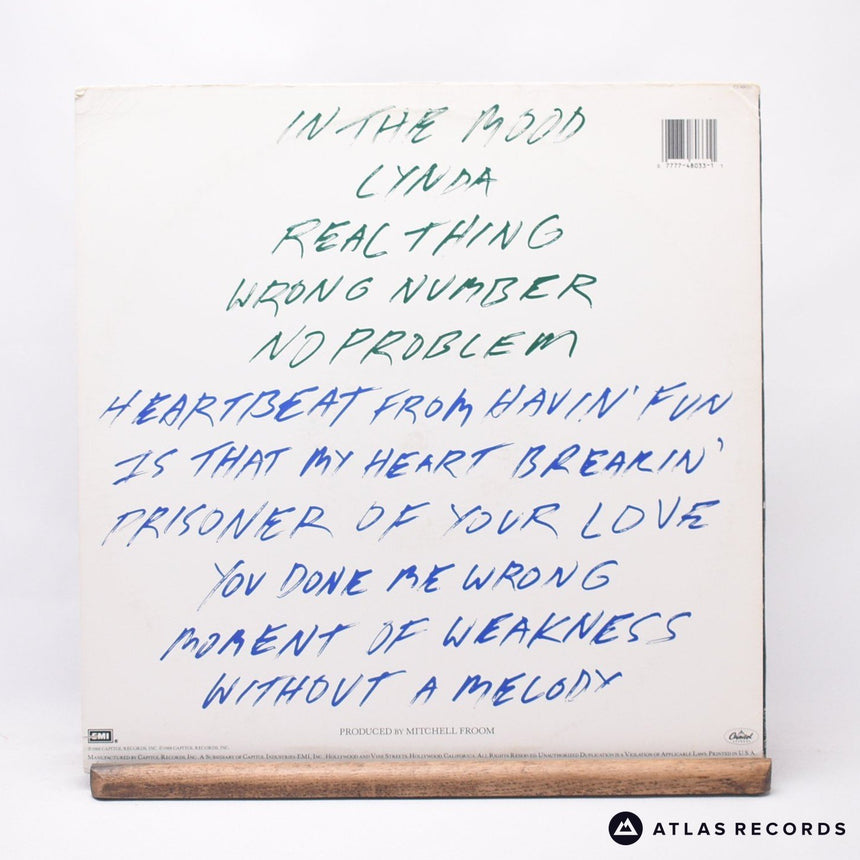 IN THE MOOD
LYNDA
REAL THING
WRONG NUMBER
NO PROBLEM
HEARTBEAT FROM HAVIN' FUN
IS THAT MY HEART BREAKIN'
PRISONER OF YOUR LOVE
YOU DONE ME WRONG
MOMENT OF WEAKNESS
WITHOUT A MELODY
0 7777-48033-1 1
PRODUCED BY MITCHELL FROOM
EMI
Capitol
℗1988 CAPITOL RECORDS, INC. ©1988 CAPITOL RECORDS, INC.
MANUFACTURED BY CAPITOL RECORDS, INC. A SUBSIDIARY OF CAPITOL INDUSTRIES-EMI, INC. HOLLYWOOD AND VINE STREETS, HOLLYWOOD, CALIFORNIA. ALL RIGHTS RESERVED. UNAUTHORIZED DUPLICATION IS A VIOLATION OF APPLICABLE LAWS. PRINTED IN U.S.A.
ATLAS RECORDS